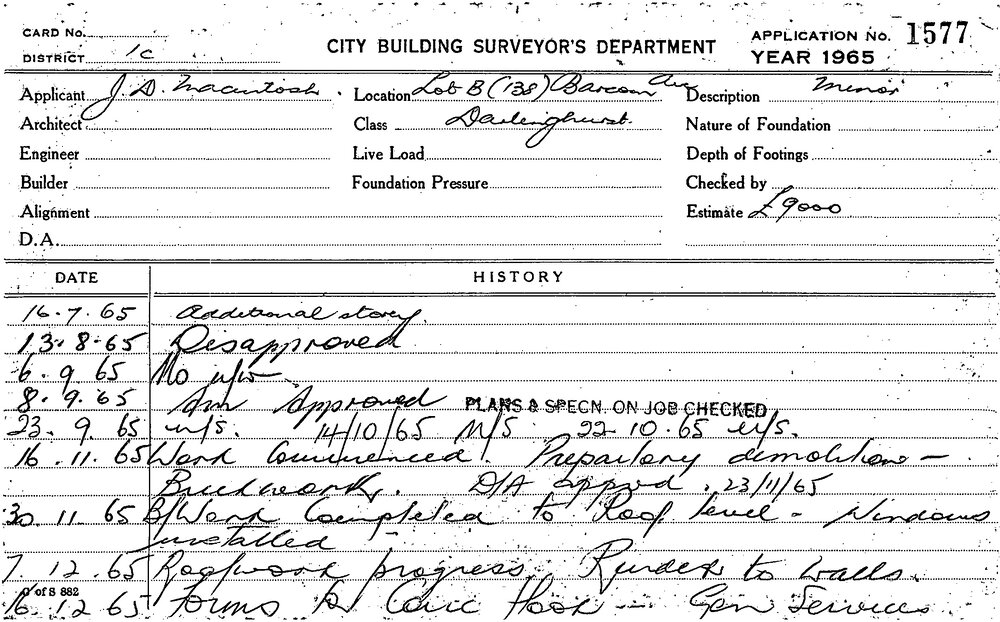 CARD No.
DISTRICT 1C
CITY BUILDING SURVEYOR'S DEPARTMENT
APPLICATION No. 1577
YEAR 1965
Applicant J. D. Macintosh. Location Lot B (138) Barcom Av Description Minor
Architect Class Darlinghurst. Nature of Foundation
Engineer Live Load Depth of Footings
Builder Foundation Pressure Checked by
Alignment Estimate £9000
D.A.
DATE HISTORY
16.7.65 Additional storey.
13.8.65 Disapproved
6.9.65 No
8.9.65 Am Approved PLANS & SPECN. ON JOB CHECKED
23.9.65 N/S. 14/10/65 N/S 22-10.65 N/S.
16.11.65 Work Commenced. Prepartory demolition -
Brickwork. D/A approd. 23/11/65
30.11.65 B/Work Completed to Roof level - Windows
installed
7.12.65 Roofwork progress. Render to walls.
16.12.65 Forms to Conc floor - Gen Services
of S 882